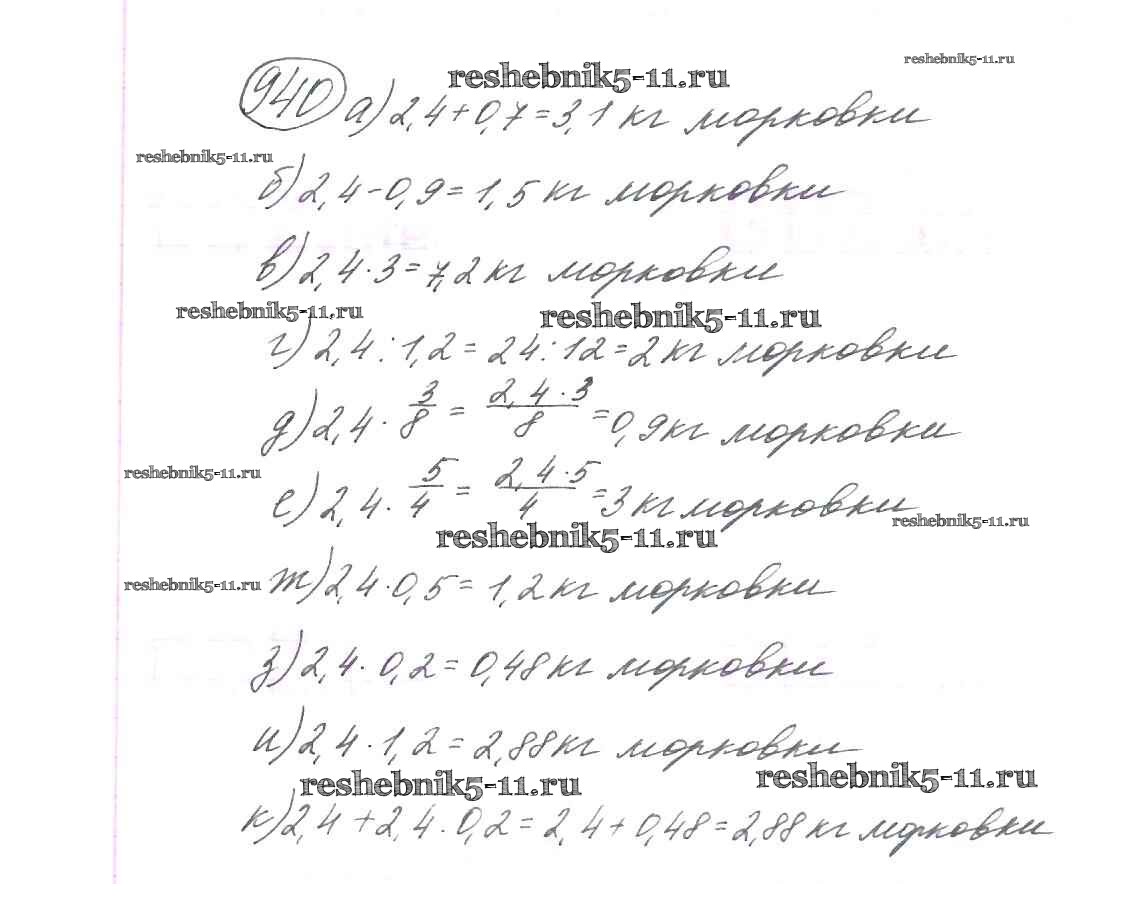 reshebnik5-11.ru
reshebnik5-11.ru
940 а) 2,4+0,7=3,1 кг морковки
reshebnik5-11.ru
б) 2,4-0,9=1,5 кг морковки
в) 2,4·3=7,2 кг морковки
reshebnik5-11.ru
reshebnik5-11.ru
г) 2,4:1,2=24:12=2 кг морковки
д) 2,4·3/8=2,4·3/8=0,9 кг морковки
reshebnik5-11.ru
е) 2,4·5/4=2,4·5/4=3 кг морковки
reshebnik5-11.ru
reshebnik5-11.ru
reshebnik5-11.ru
ж) 2,4·0,5=1,2 кг морковки
з) 2,4·0,2=0,48 кг морковки
и) 2,4·1,2=2,88 кг морковки
reshebnik5-11.ru
reshebnik5-11.ru
к) 2,4+2,4·0,2=2,4+0,48=2,88 кг морковки